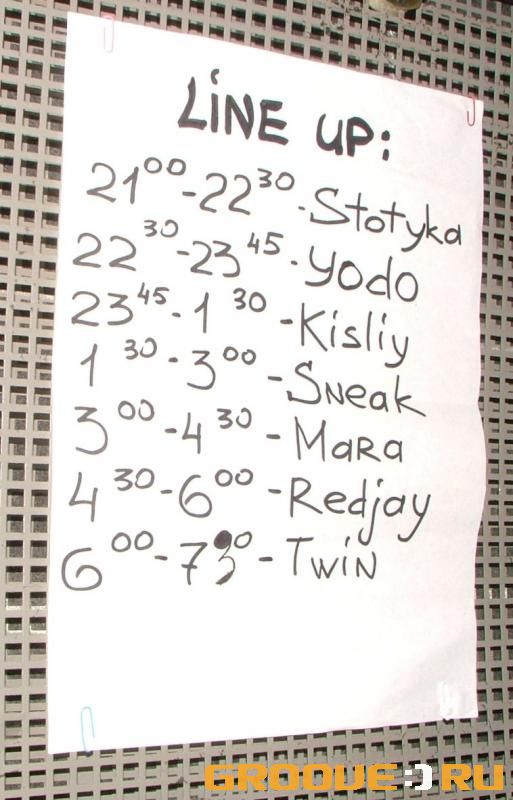 LiNE UP:
2100-2230-Stotyka
2230-2345-Yodo
2345-1 30-Kisliy
1 30-300-Sneak
300-430-Mara
430-600-Redjay
600-730-Twin
GROOVE:)RU